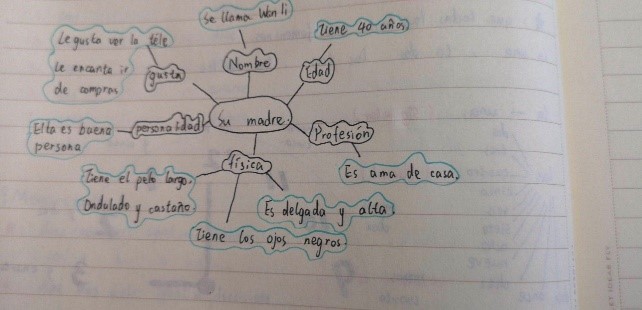 Se llama Wan li
Tiene 40 años
Le gusta ver la tele
Le encanta ir
de compras
gusta
Nombre
Edad
Su madre.
Ella es buena
persona
personalidad
Profesión
Es ama de casa.
física
Tiene el pelo largo.
Ondulado y castaño.
Es delgada y alta.
Tiene los ojos negros.